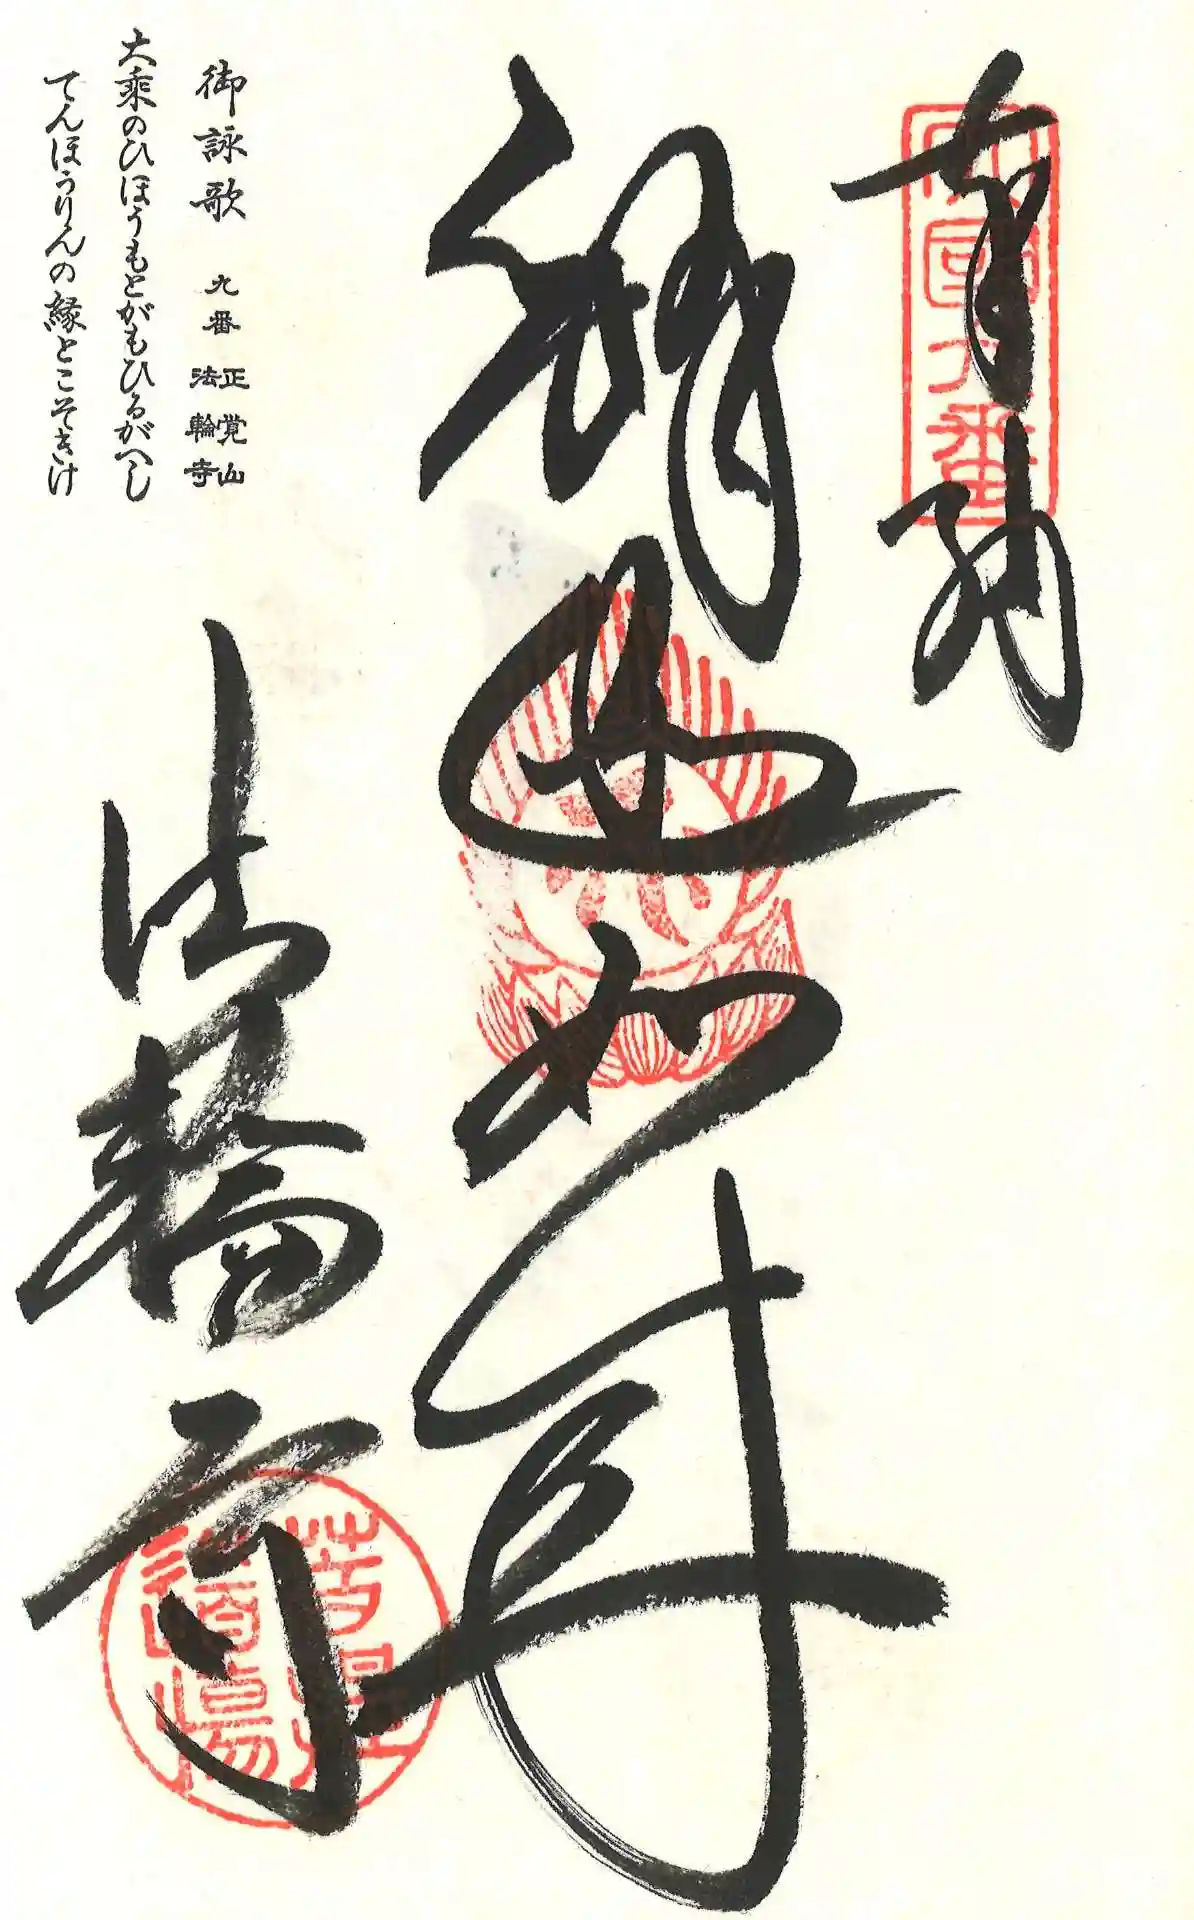 奉納
四國九番
釈迦如来
法輪寺
菩提道場
御詠歌 九番 正覚山 法輪寺
大乗のひほうもとがもひるがへし
てんぽうりんの縁とこそきけ